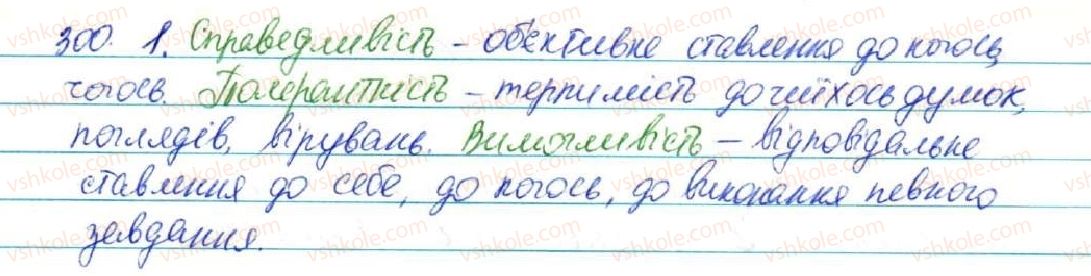 300. 1. Справедливість – об'єктивне ставлення до когось,
чогось. Толерантність – терпимість до чиїхось думок,
поглядів, вірувань. Вимогливість – відповідальне
ставлення до себе, до когось, до виконання певного
завдання.